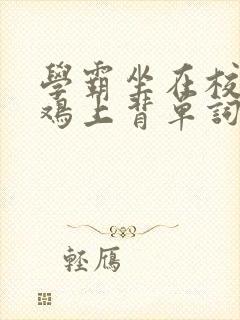 學霸坐在校
鴉上背單詞
輕鴈